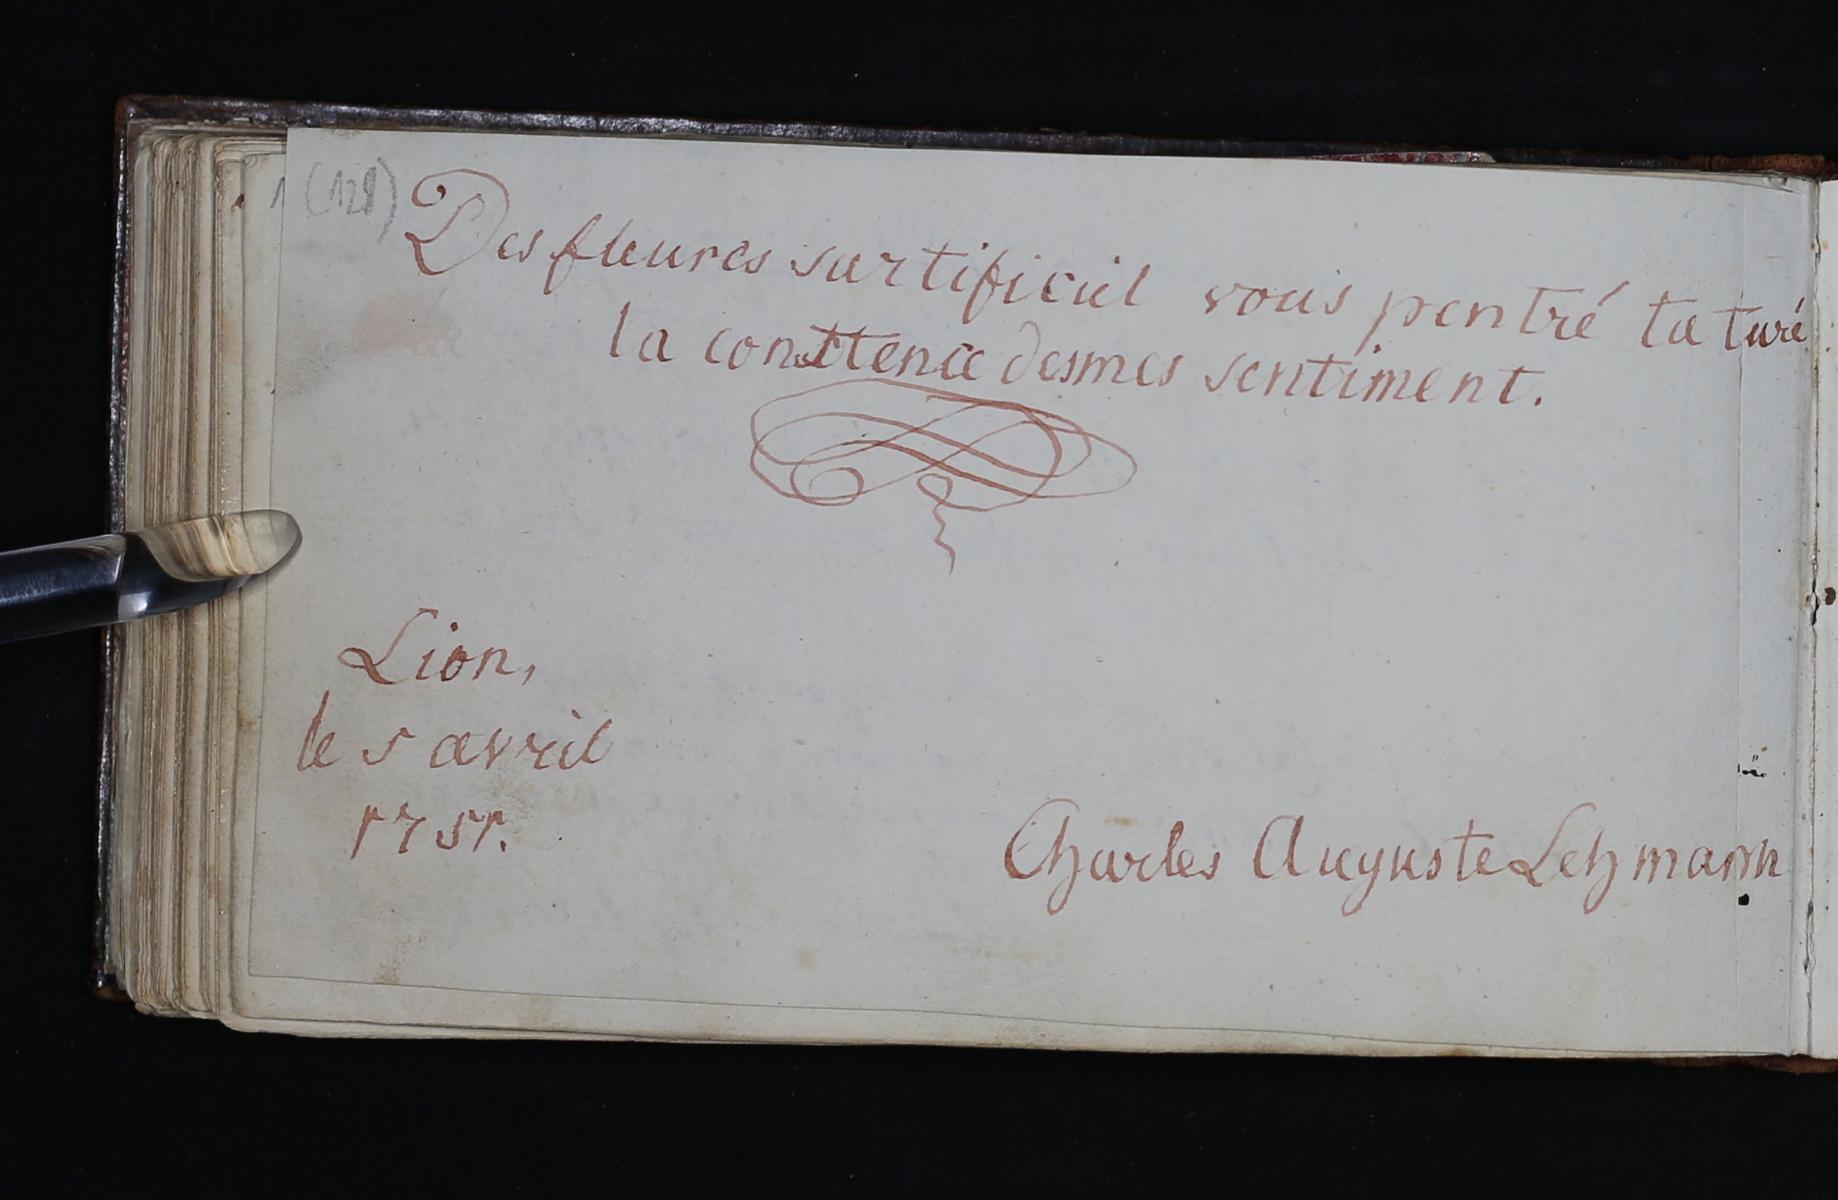 (128)
Des fleures surtificiel vous pentré taturé
la consttence desmes sentiment.
Lion,
le 5 avril
1751.
Charles Auguste Lehmann